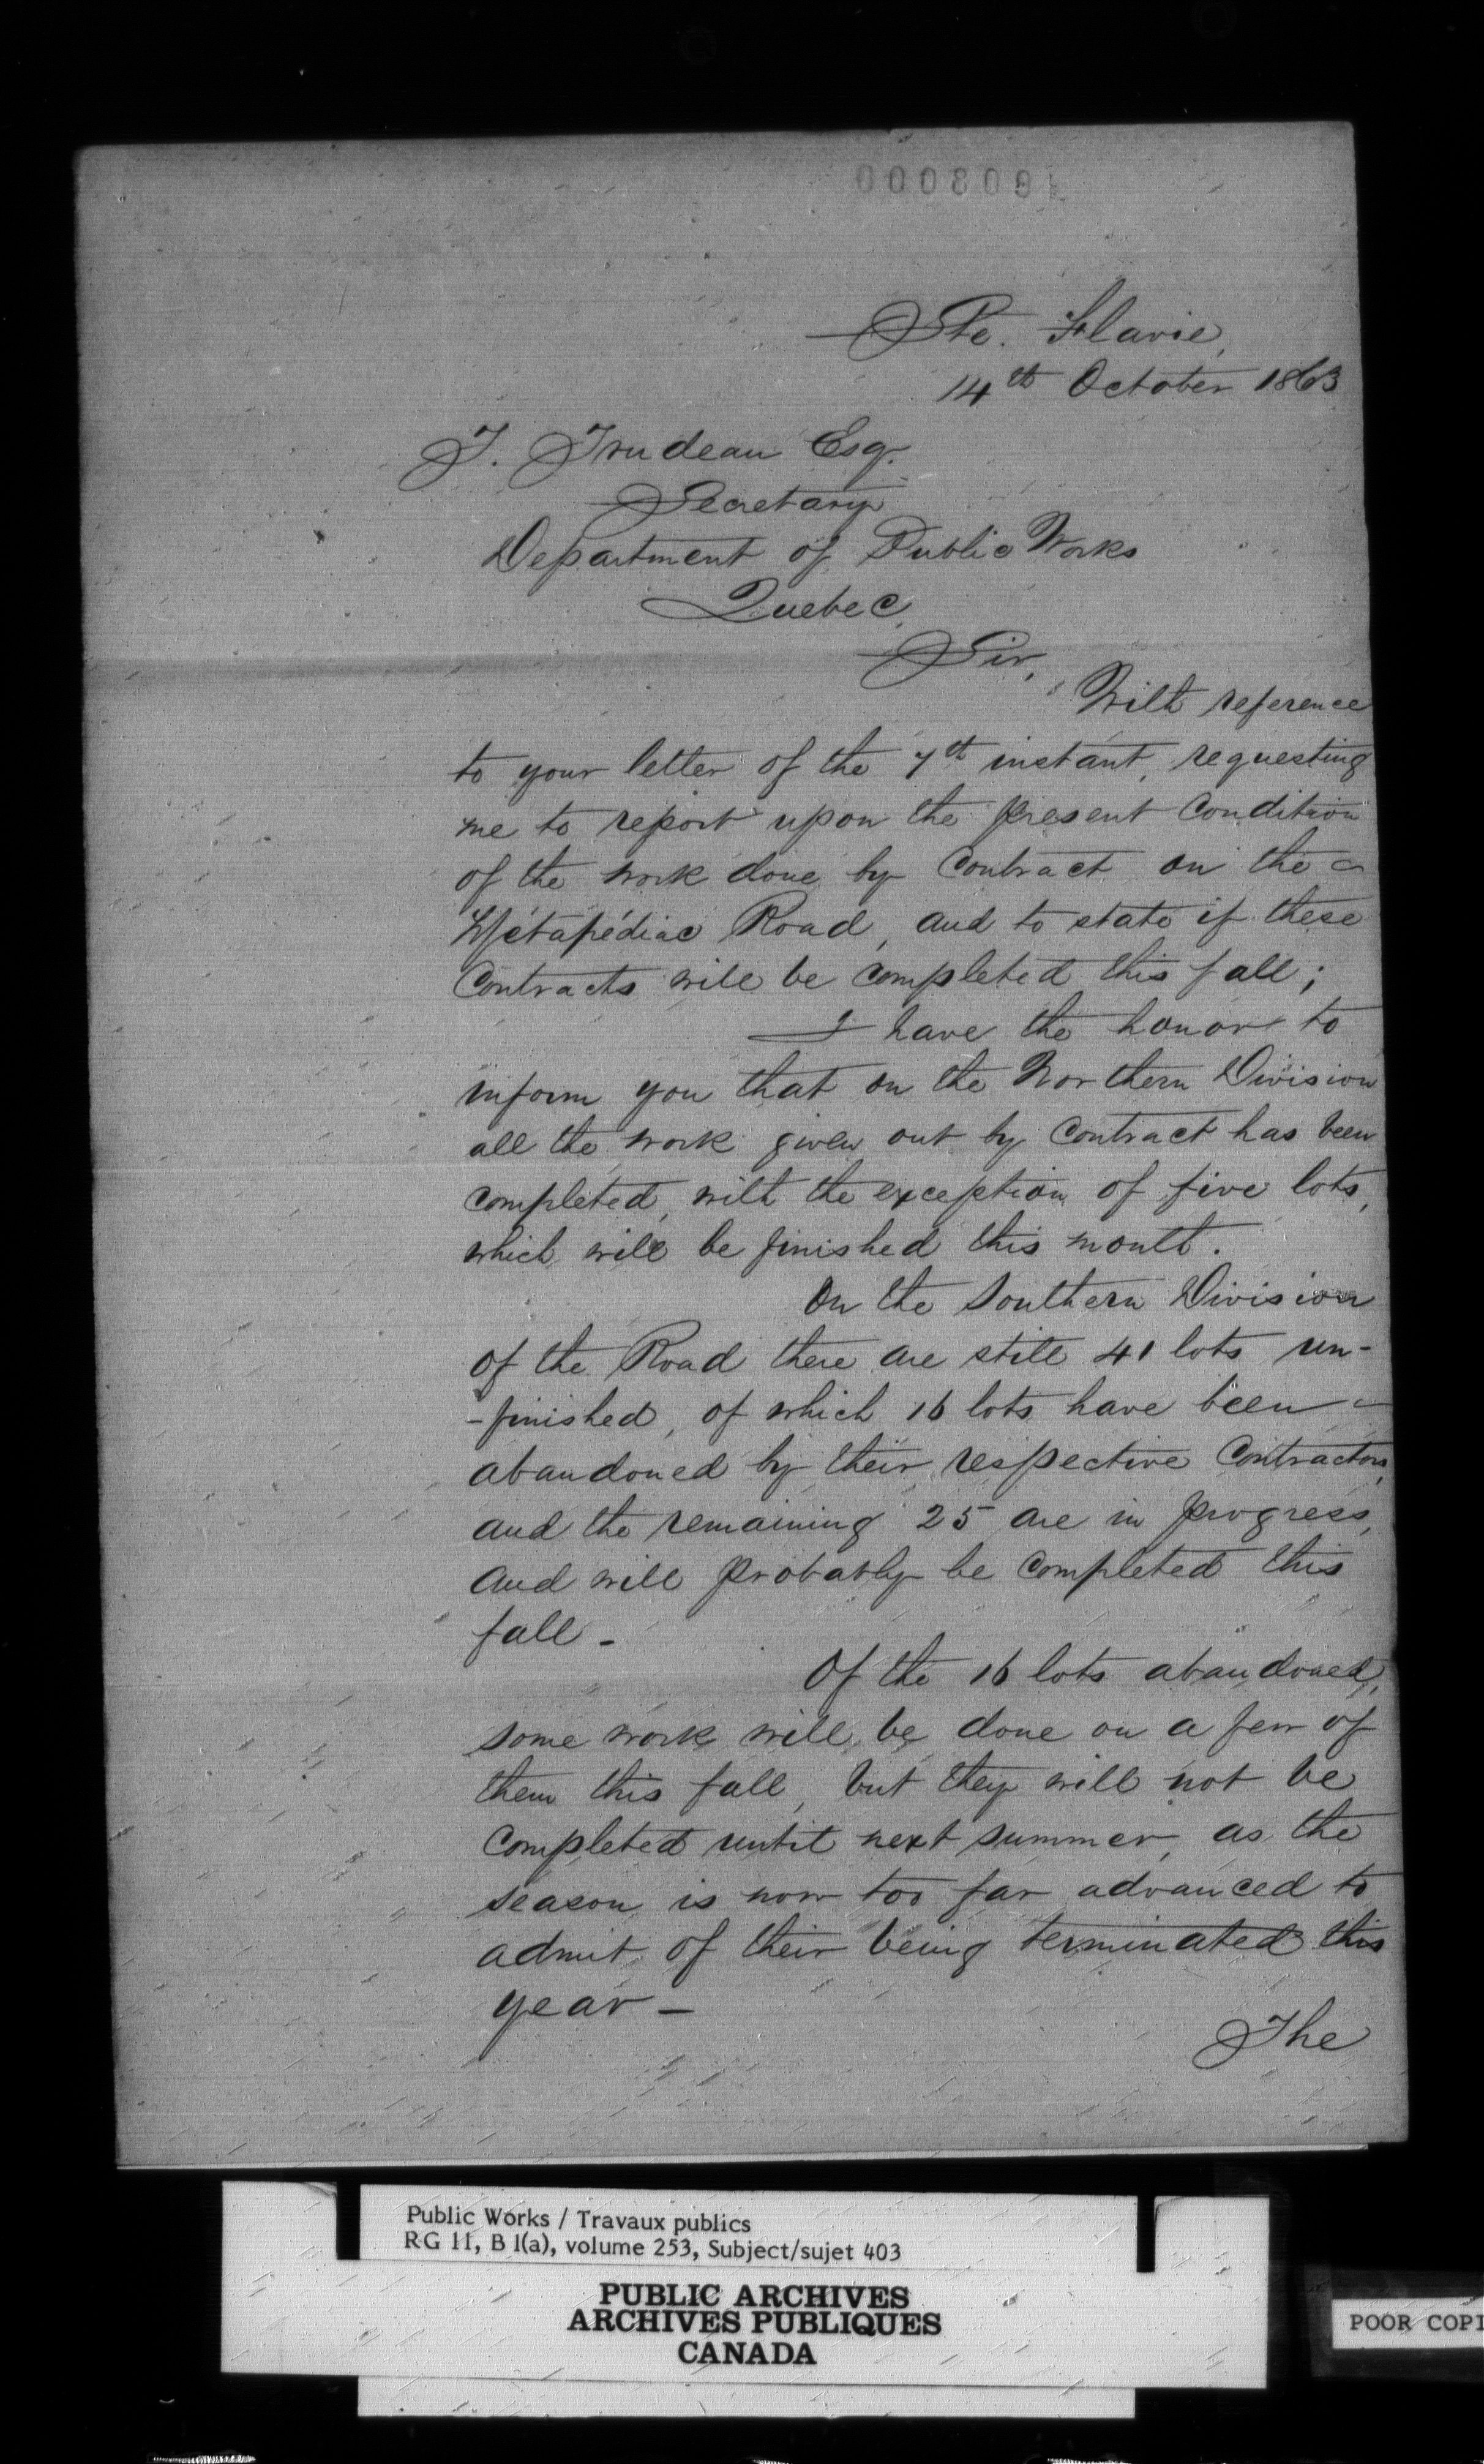 Ste. Flavie,
14th October 1863
T. Trudeau Esq.
Secretary
Department of Public Works
Quebec.
Sir,
With reference
to your letter of the 7th instant, requesting
me to report upon the present condition
of the work done by Contract on the
Métapédiac Road, and to state if these
Contracts will be completed this fall;
I have the honor to
inform you that on the Northern Division
all the work given out by Contract has been
completed, with the exception of five lots,
which will be finished this month.
On the Southern Division
of the Road there are still 41 lots un-
-finished, of which 16 lots have been
abandoned by their respective Contractors,
and the remaining 25 are in progress,
and will probably be completed this
fall -
Of the 16 lots abandoned,
some work will be done on a few of
them this fall, but they will not be
completed until next summer, as the
season is now too far advanced to
admit of their being terminated this
year -
The
Public Works / Travaux publics
RG 11, B 1(a), volume 253, Subject/sujet 403
PUBLIC ARCHIVES
ARCHIVES PUBLIQUES
CANADA
POOR COPI